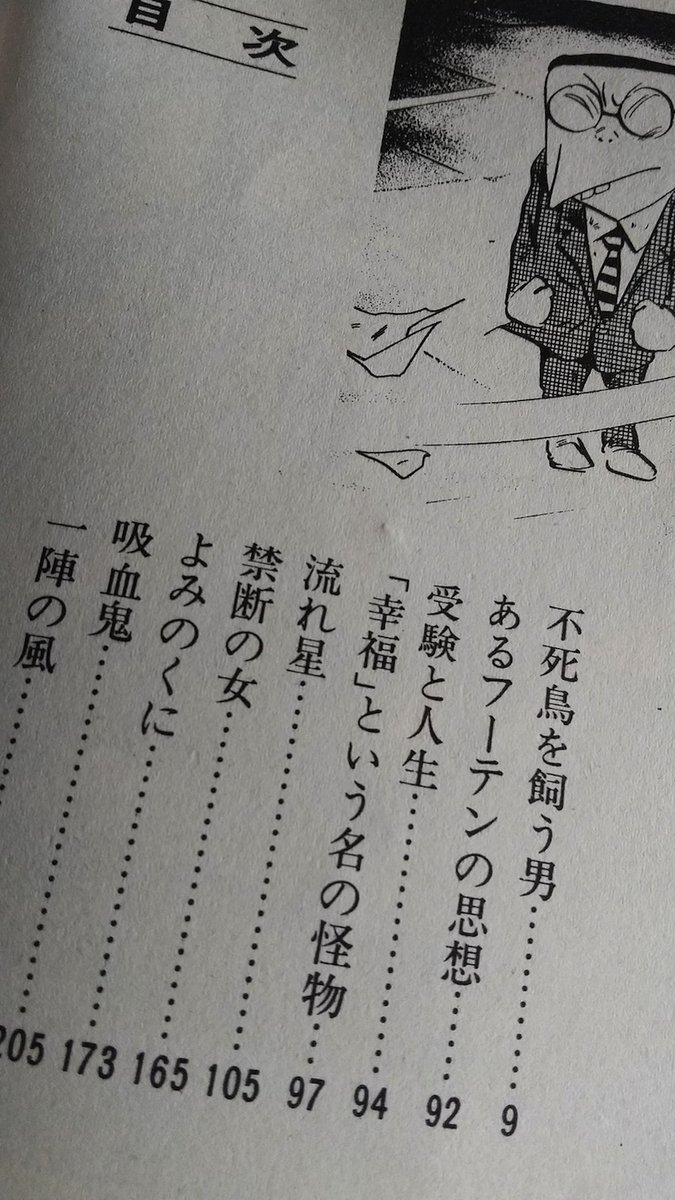 目次
不死鳥を飼う男……………9
あるフーテンの思想……92
受験と人生……………94
「幸福」という名の怪物…97
流れ星……………105
禁断の女……………165
よみのくに……………173
吸血鬼……………205
一陣の風……